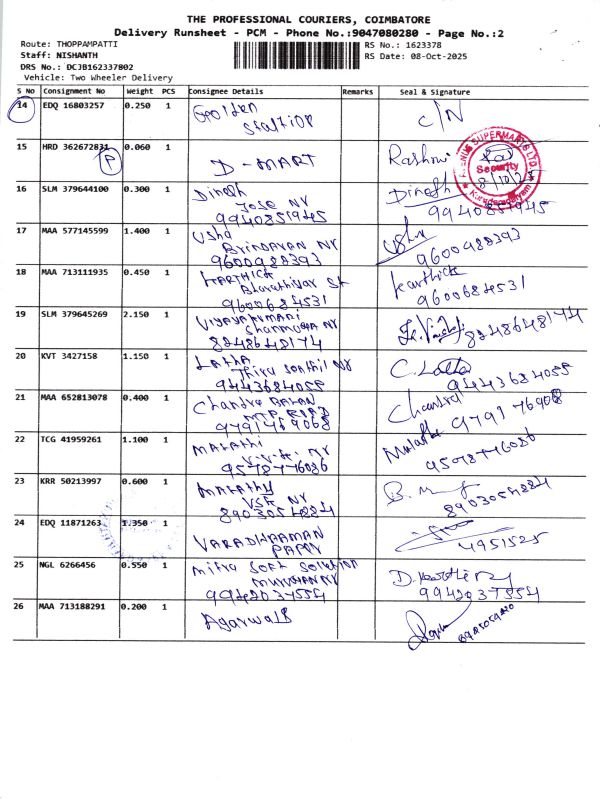 THE PROFESSIONAL COURIERS, COIMBATORE
Delivery Runsheet - PCM - Phone No.:9047080280 - Page No.:2
Route: THOPPAMPATTI
RS No.: 1623378
Staff: NISHANTH
RS Date: 08-Oct-2025
DRS No.: DCJB162337802
Vehicle: Two Wheeler Delivery
S No Consignment No Weight PCS Consignee Details Remarks Seal & Signature
14 EDQ 16803257 0.250 1 Golden C/N
15 HRD 362672831 0.060 1 D-MART Rashmi
P
AVENUE SUPERMARTS LTD.
Security
8/10/25
16 SLM 379644100 0.300 1 Dinesh Dinesh
Jose NY
9940851945 9940851945
17 MAA 577145599 1.400 1 Usha Usha
Brindavan NY
9600988393 9600988393
18 MAA 713111935 0.450 1 Karthick Karthick
Bharathiyar St
9600684531 9600684531
19 SLM 379645269 2.150 1 Vijayakumari
Shanmuga NY
8248648174 8248648174
20 KVT 3427158 1.150 1 Latha C. Latha
Thiru Senthil NY
9443684055 9443684055
21 MAA 652813078 0.400 1 Chandra Balan Chandra
MTP Road
9791769068 9791769068
22 TCG 41959261 1.100 1 Malathi Malathi
V.V.K. NY
9578776086 9578776086
23 KRR 50213997 0.600 1 Malathy
VSK NY
8903054884 8903054884
24 EDQ 11871263 1.350 1 VARADHRAMAN
4951525
25 NGL 6266456 0.550 1 Mitra Soft Solution
Murugan NY
9942037554 9942037554
26 MAA 713188291 0.200 1 Agarwals